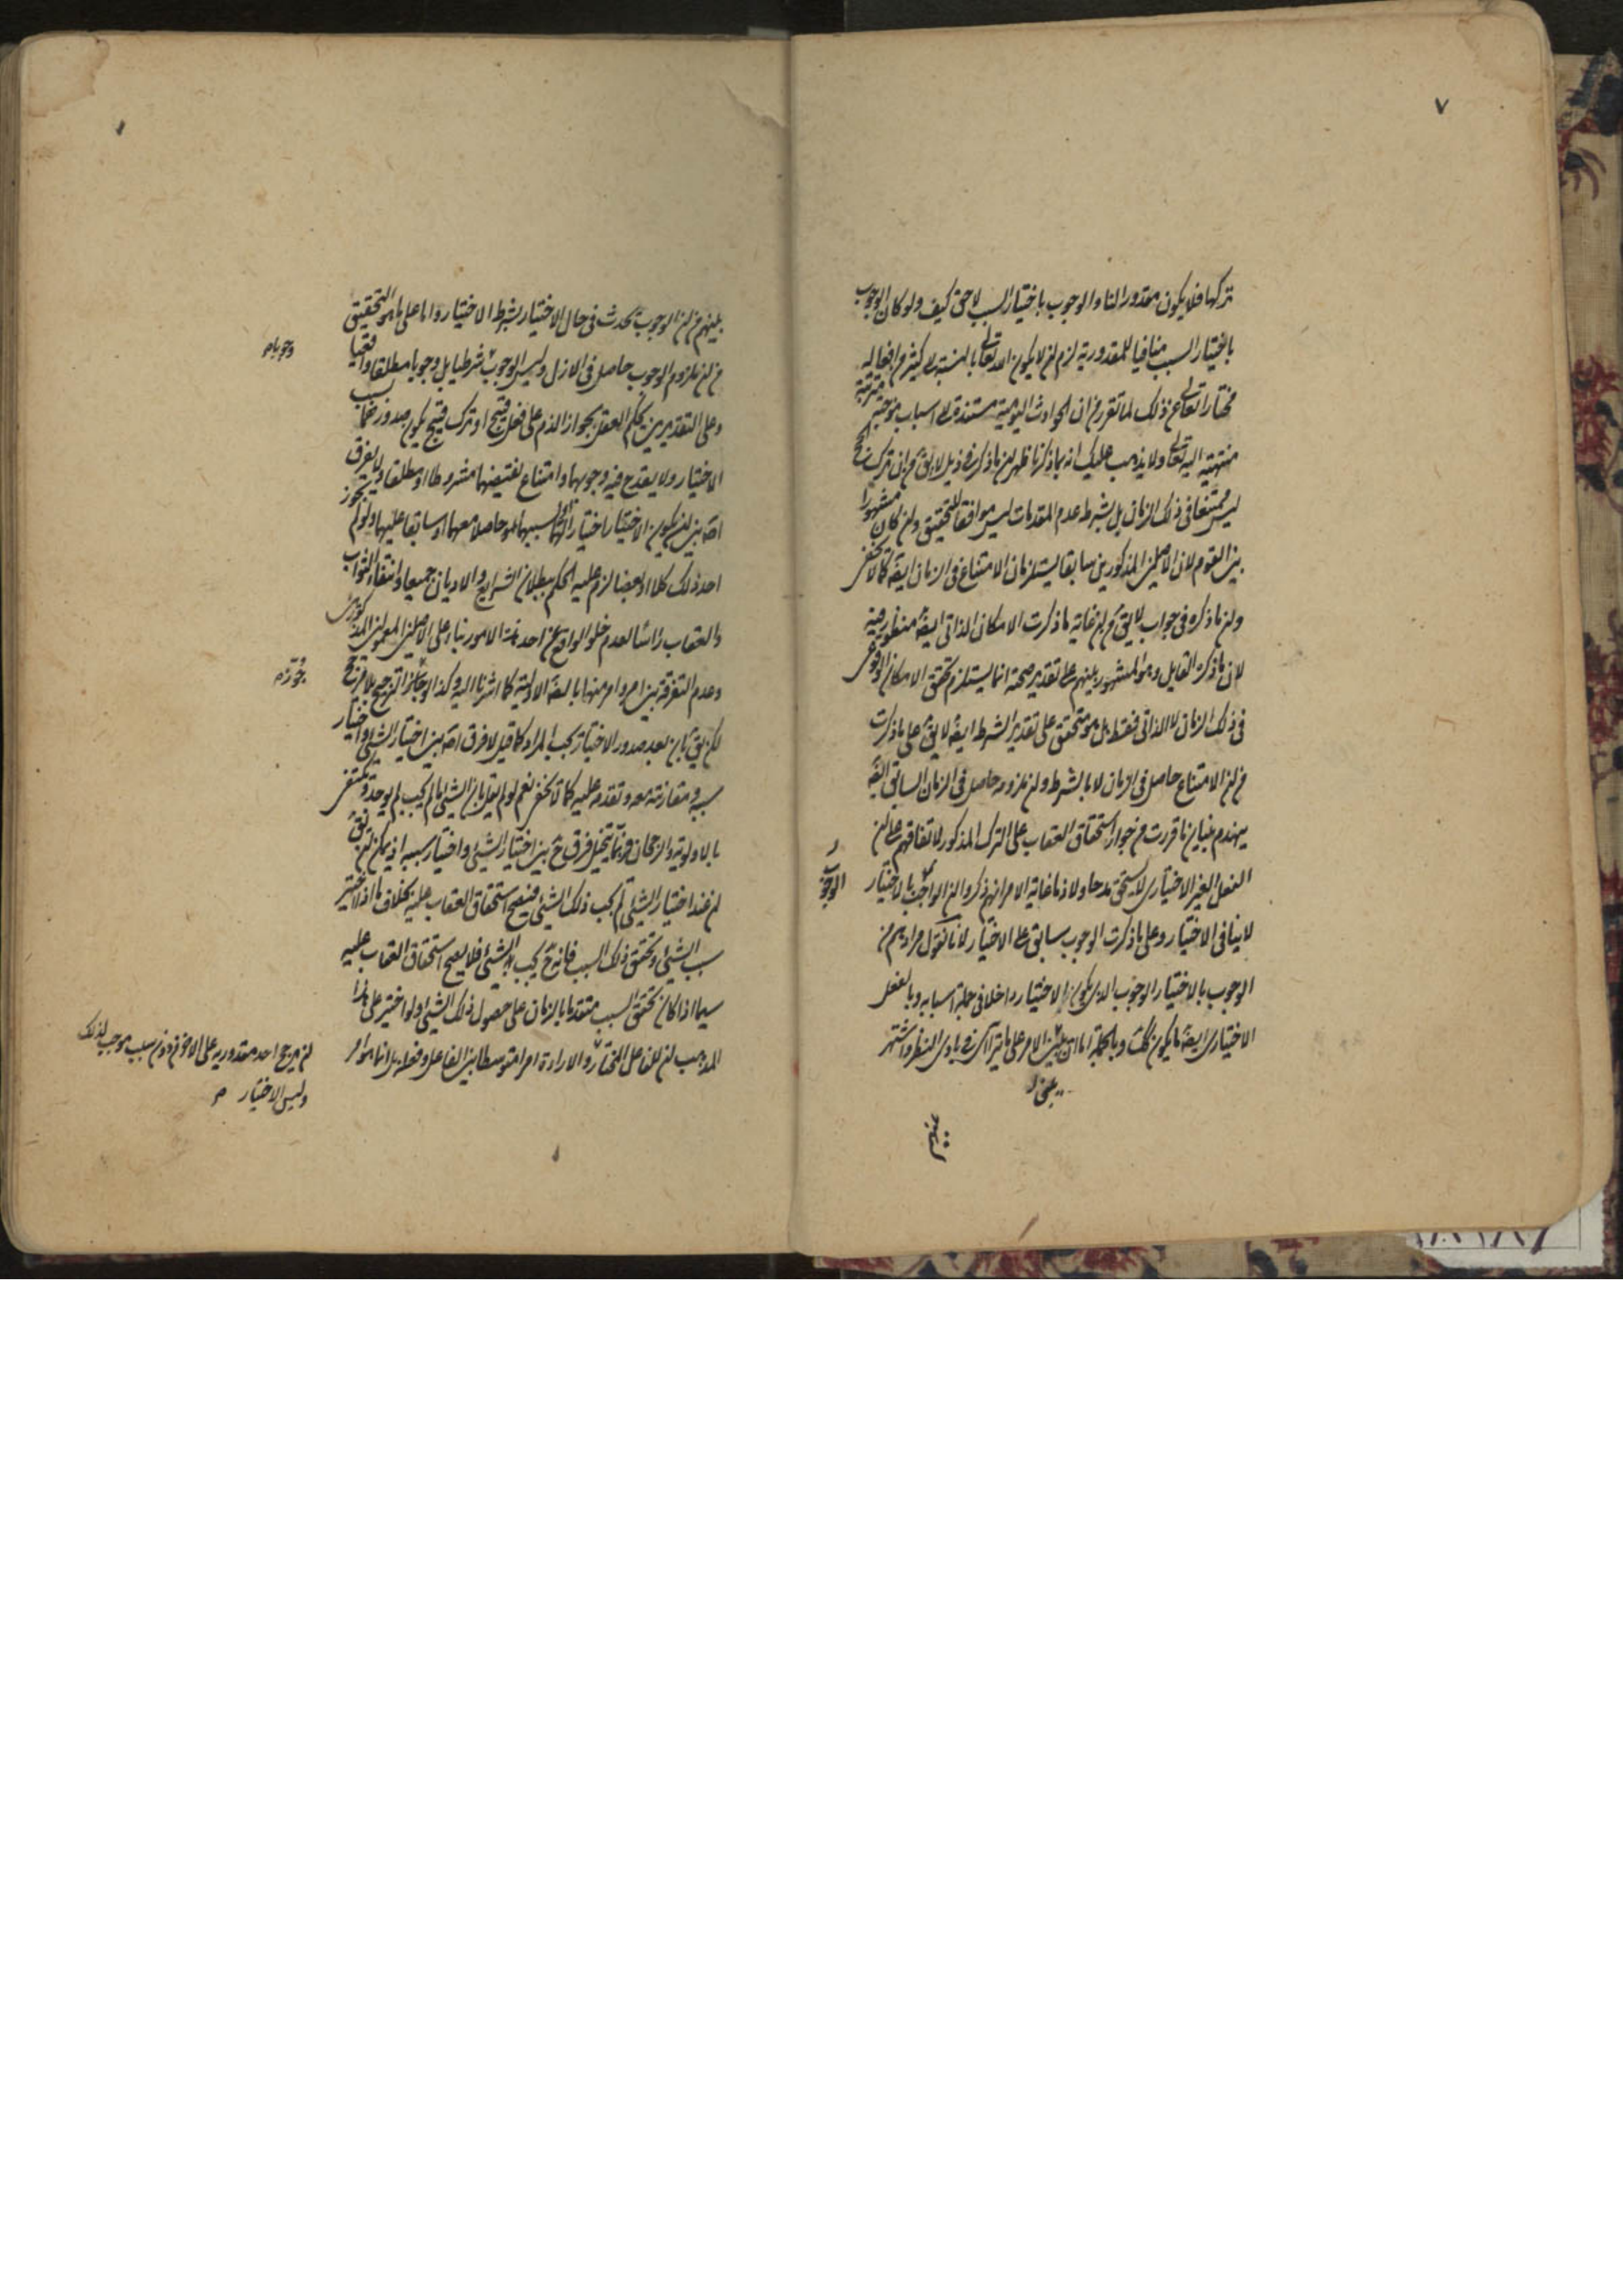 ٧
تركها فلا يكون مقدورا لنا والوجوب باختيار السبب لاحق كيف ولو كان الوجوب
باختيار السبب منافيا للمقدورية لزم ان لا يكون الله تعالى بالنسبة الى كثير من افعاله
مختارا تعالى عن ذلك لما تقرر من ان الحوادث اليومية مستندة الى اسباب مترتبة
منتهية اليه تعالى ولا يذهب عليك انه بما ذكرنا ظهر ان ما ذكر في ذيل لا يق من ان ترك الحج
ليس ممتنعا في ذلك الزمان بل بشرط عدم المقدمات ليس موافقا للتحقيق وان كان مشهورا
بين القوم لان الاصلين المذكورين سابقا يستلزمان الامتناع في الزمان ايضا كما لا يخفى
وان ما ذكره في جواب لا يق من ان غاية ما ذكرت الامكان الذاتي ايضا منظور فيه
لان ما ذكره القايل وهو المشهور بينهم على تقدير صحته انما يستلزم تحقق الامكان الوقوعى
في ذلك الزمان لا الذاتي فقط بل هو متحقق على تقدير الشرط ايضا لا يق على ما ذكرت
من ان الامتناع حاصل في الزمان لا بالشرط وان ملزومه حاصل في الزمان السابق ايضا
ينهدم بنيان ما قررت من جواز استحقاق العقاب على الترك المذكور لاتفاقهم على ان
الفعل الغير الاختياري لا يستحق مدحا ولا ذما غاية الامر انهم ذكروا ان الواجب بالاختيار
الوجوب
لا ينافي الاختيار وعلى ما ذكرت الوجوب سابق على الاختيار لانا نقول مرادهم من
الوجوب بالاختيار الوجوب الذي يكون الاختيار داخلا في جملة اسبابه وبالفعل
الاختياري ايضا ما يكون كذلك وبالجملة اما ان يبنى الامر على ما يتراآى في بادى النظر واشتهر
بينهم
بينهم من ان الوجوب يحدث في حال الاختيار بشرط الاختيار واما على ما هو التحقيق
من ان ملزوم الوجوب حاصل في الازل وليس الوجوب شرطيا بل وجوبا مطلقا واقعيا
وجوبا م
وعلى التقديرين يحكم العقل بجواز الذم على فعل قبيح او ترك قبيح يكون صدورهما بسبب
الاختيار ولا يقدح فيه وجوبهما وامتناع نقيضهما مشروطا او مطلقا ولا يفرق
اصلا بين ان يكون الاختيار اختيارا لهما او لسببهما حاصلا معهما او سابقا عليهما ولو لم يجوز
احد ذلك كلا او بعضا لزم عليه الحكم ببطلان الشرايع والاديان جميعا وانتفاء الثواب
والعقاب راسا لعدم خلو الواقع عن احد هذه الامور بناء على الاصلين المعولين المذكورين
وعدم التفرقة بين امر وامر منها بالبديهة الاولية كما اشرنا اليه وكذا لو جوز الترجيح بلا مرجح
جوز م
لكن يق بان بعد صدور الاختيار يجب المراد كما قيل لا فرق اصلا بين اختيار الشئ واختيار
سببه ومقارنته معه وتقدمه عليه كما لا يخفى نعم لو لم يقل بان الشئ ما لم يجب لم يوجد ويكتفى
بالاولوية والرجحان فربما يتخيل فرق ح بين اختيار الشئ واختيار سببه اذ يمكن ان يق
ان عند اختيار الشئ لم يجب ذلك الشئ فيصح استحقاق العقاب عليه بخلاف ما اذا اختير
سبب الشئ وتحقق ذلك السبب فانه ح يجب الشئ فلا يصح استحقاق العقاب عليه
سيما اذا كان تحقق السبب متقدما بالزمان على حصول ذلك الشئ ولو اختير على هذا
المذهب ان للفاعل المختار والارادة امرا متوسطا بين الفاعل وفعله بل انما هو امر
ان يرجح احد مقدوريه على الاخر من دون سبب موجب لذلك
وليس الاختيار م